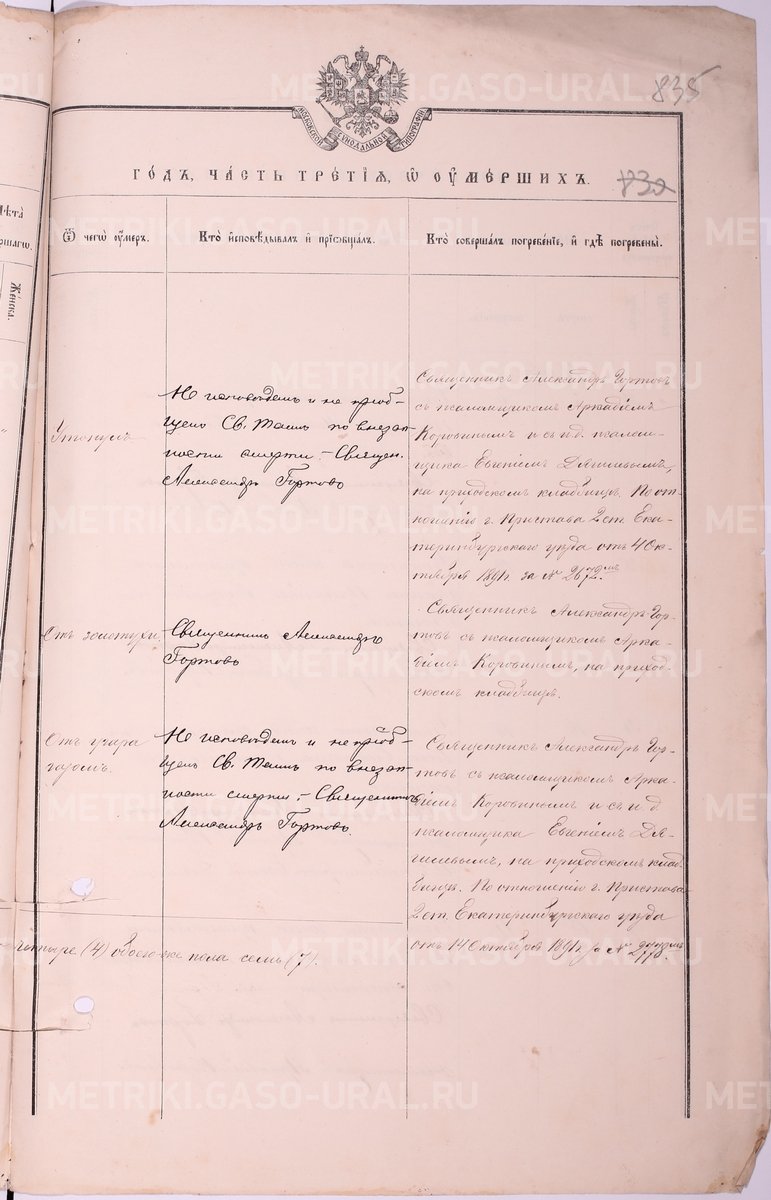 835
МОСКОВСКОЙ СѴНОДАЛЬНОЙ ТИПОГРАФІИ
ГОДЪ, ЧАСТЬ ТРЕТІЯ, Ѿ ОУМЕРШИХЪ.
832
Женска.
Ѿ чегѡ оумеръ.
Кто исповѣдывалъ и пріобщалъ.
Кто совершалъ погребеніе, и гдѣ погребены.
Утонулъ
Не исповѣданъ и не пріоб-
щенъ Св. Таинъ по внезап-
ности смерти. – Священ.
Александръ Гортовъ
Священникъ Александръ Гортовъ
съ псаломщикомъ Аркадіемъ
Коровинымъ и съ и. д. псалом-
щика Евгеніемъ Дягилевымъ,
на приходскомъ кладбищѣ. По от-
ношенію г. Пристава 2 ст. Ека-
теринбургскаго уѣзда отъ 4 Ок-
тября 189 г. за № 2672.
Отъ золотухи
Священникъ Александръ
Гортовъ
Священникъ Александръ Гор-
товъ съ псаломщикомъ Арка-
діемъ Коровинымъ, на приход-
скомъ кладбищѣ.
Отъ угара
Не исповѣданъ и не пріоб-
щенъ Св. Таинъ по внезап-
ности смерти. – Священникъ
Александръ Гортовъ.
Священникъ Александръ Гор-
товъ съ псаломщикомъ Арка-
діемъ Коровинымъ и съ и. д.
псаломщика Евгеніемъ Дя-
гилевымъ, на приходскомъ клад-
бищѣ. По отношенію г. Пристава
2 ст. Екатеринбургскаго уѣзда
отъ 14 Октября 189 г. за №
четыре (4) обоего же пола семь (7).
METRIKI.GASO-URAL.RU